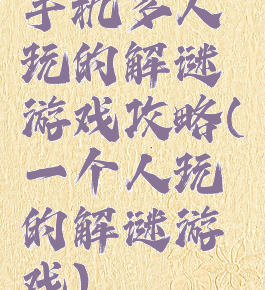 手机多人
玩的解谜
游戏攻略(
一个人玩
的解谜游
戏)